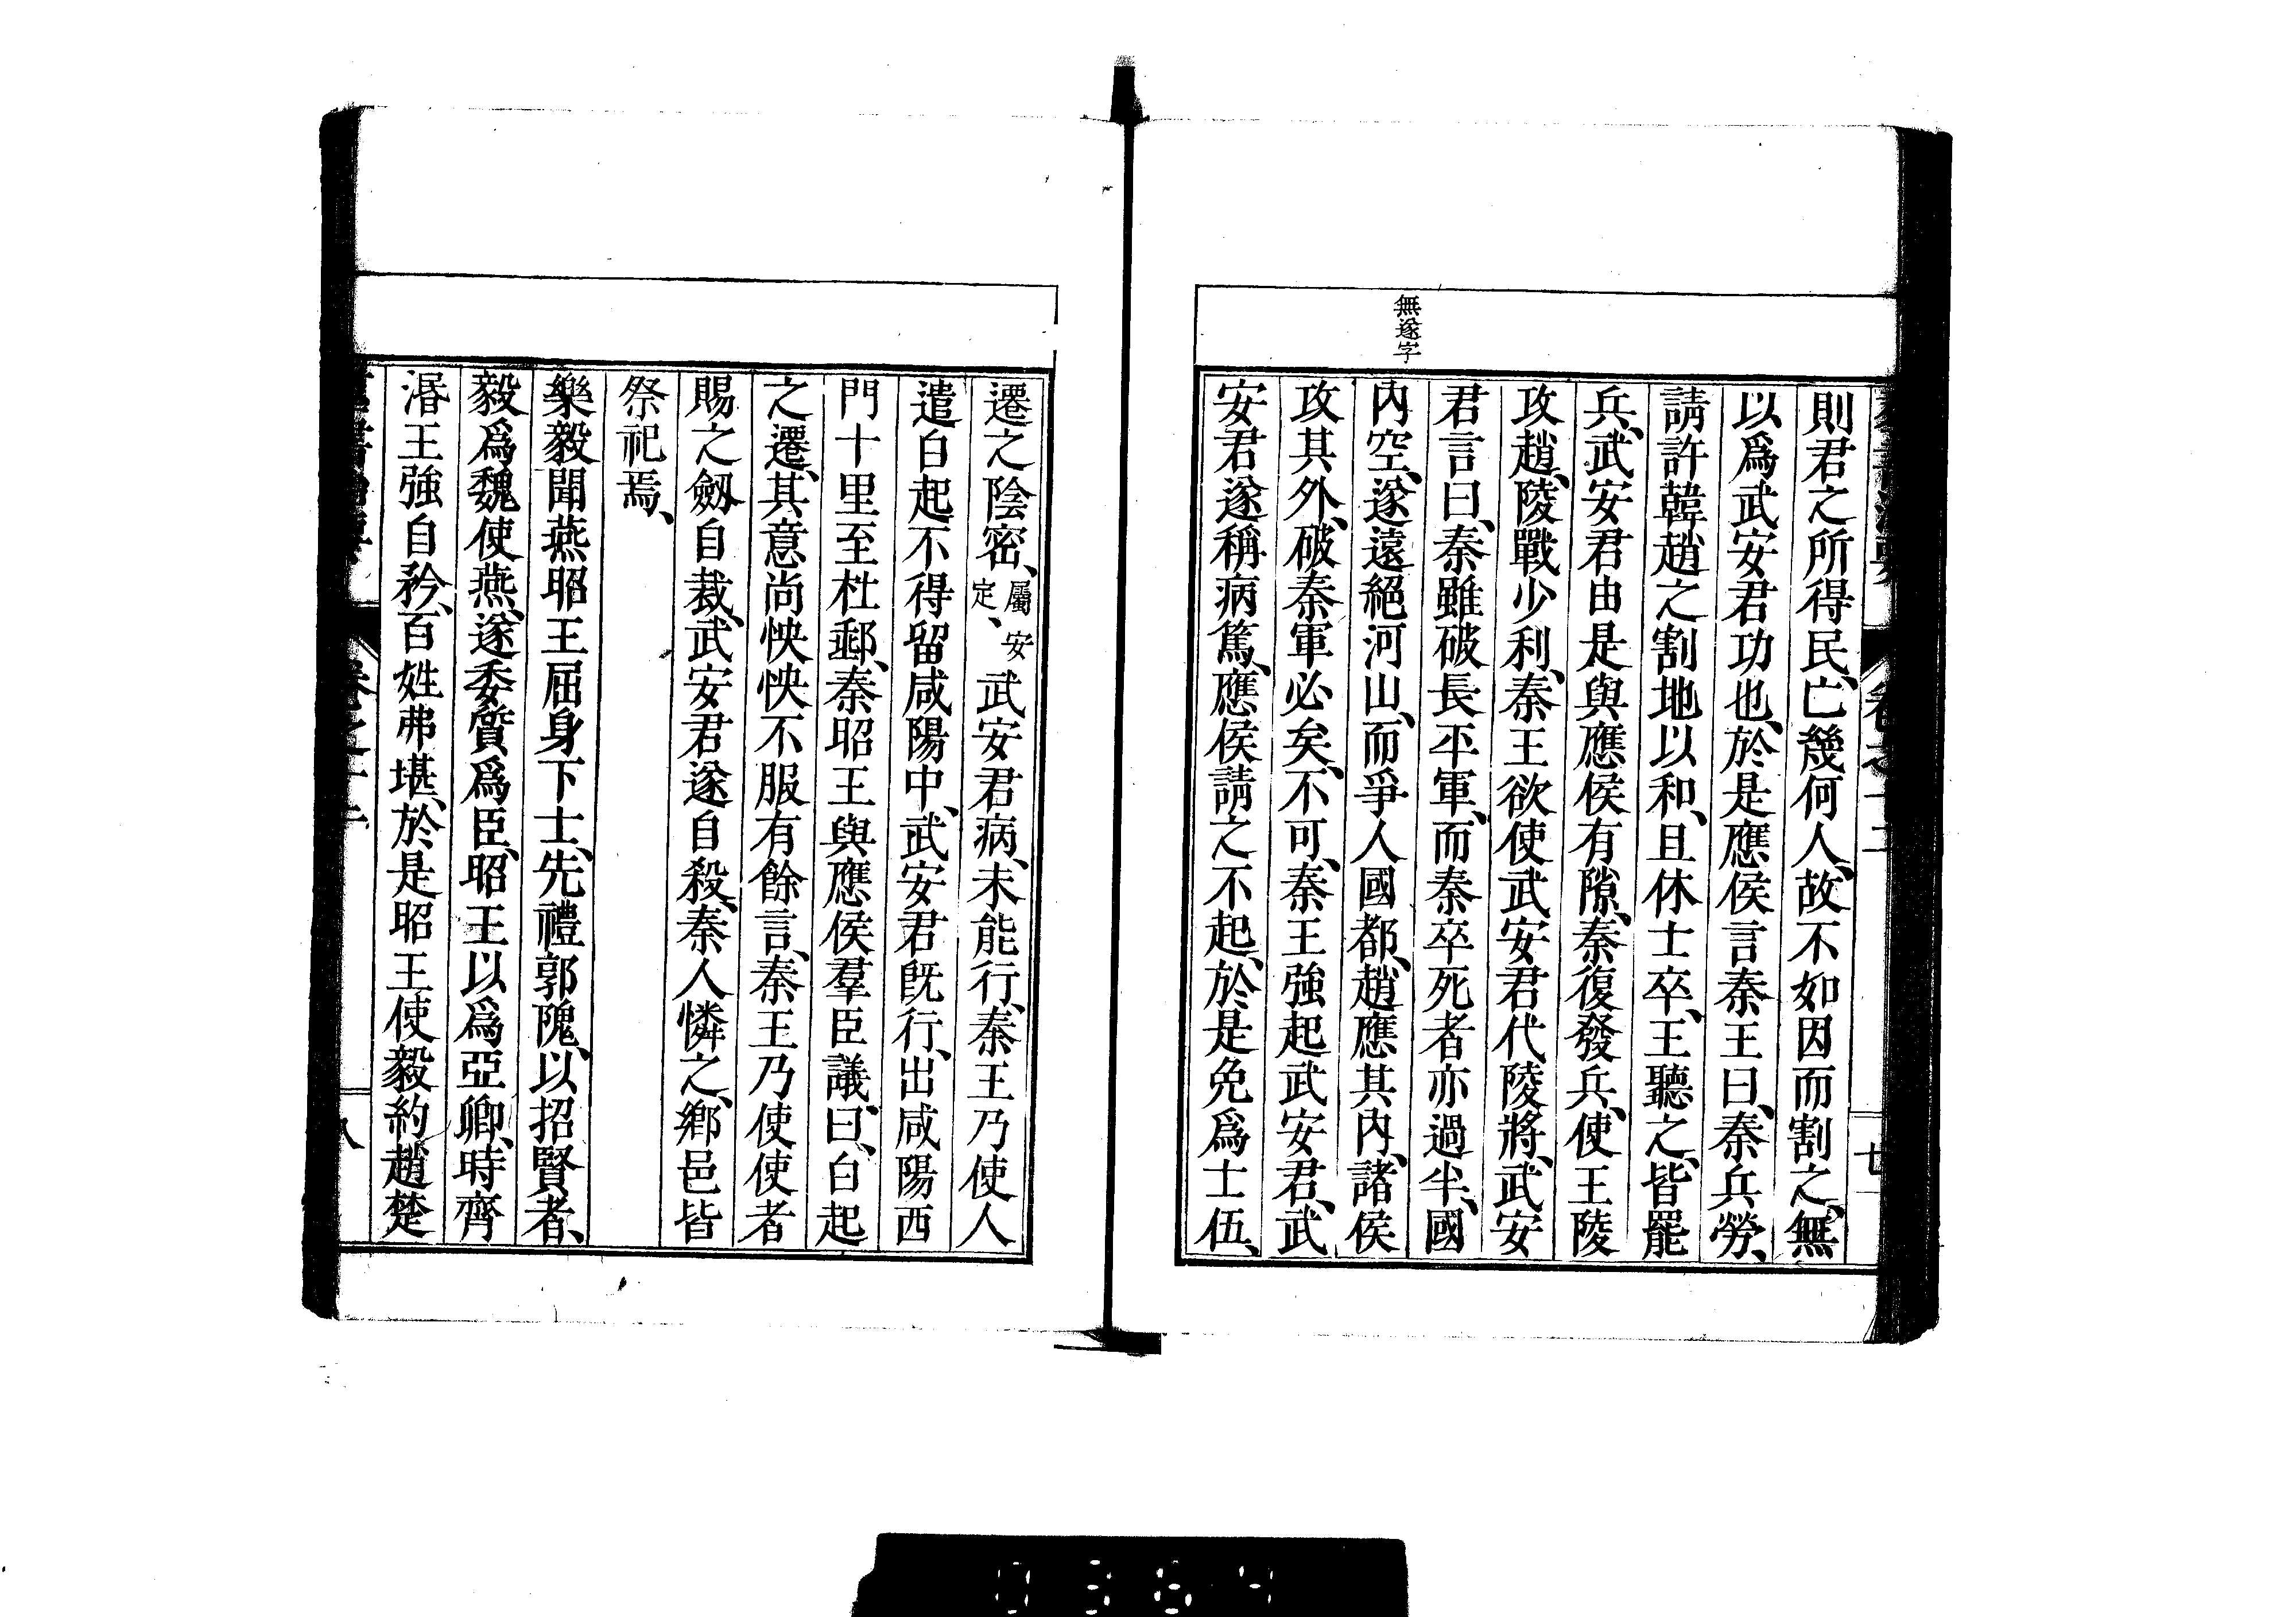 無遂字
則君之所得民、亡幾何人、故不如因而割之、無
以爲武安君功也、於是應侯言秦王曰、秦兵勞、
請許韓趙之割地以和、且休士卒、王聽之、皆罷
兵、武安君由是與應侯有隙、秦復發兵、使王陵
攻趙、陵戰少利、秦王欲使武安君代陵將、武安
君言曰、秦雖破長平軍、而秦卒死者亦過半、國
內空、遂遠絕河山、而爭人國都、趙應其內、諸侯
攻其外、破秦軍必矣、不可、秦王強起武安君、武
安君遂稱病篤、應侯請之不起、於是免爲士伍、
遷之陰密、屬安定、武安君病、未能行、秦王乃使人
遣白起不得留咸陽中、武安君既行、出咸陽西
門十里至杜郵、秦昭王與應侯羣臣議曰、白起
之遷、其意尚怏怏不服有餘言、秦王乃使使者
賜之劔自裁、武安君遂自殺、秦人憐之、鄉邑皆
祭祀焉、
樂毅聞燕昭王屈身下士、先禮郭隗、以招賢者、
毅爲魏使燕、遂委質爲臣、昭王以爲亞卿、時齊
湣王強自矜、百姓弗堪、於是昭王使毅約趙楚
0364